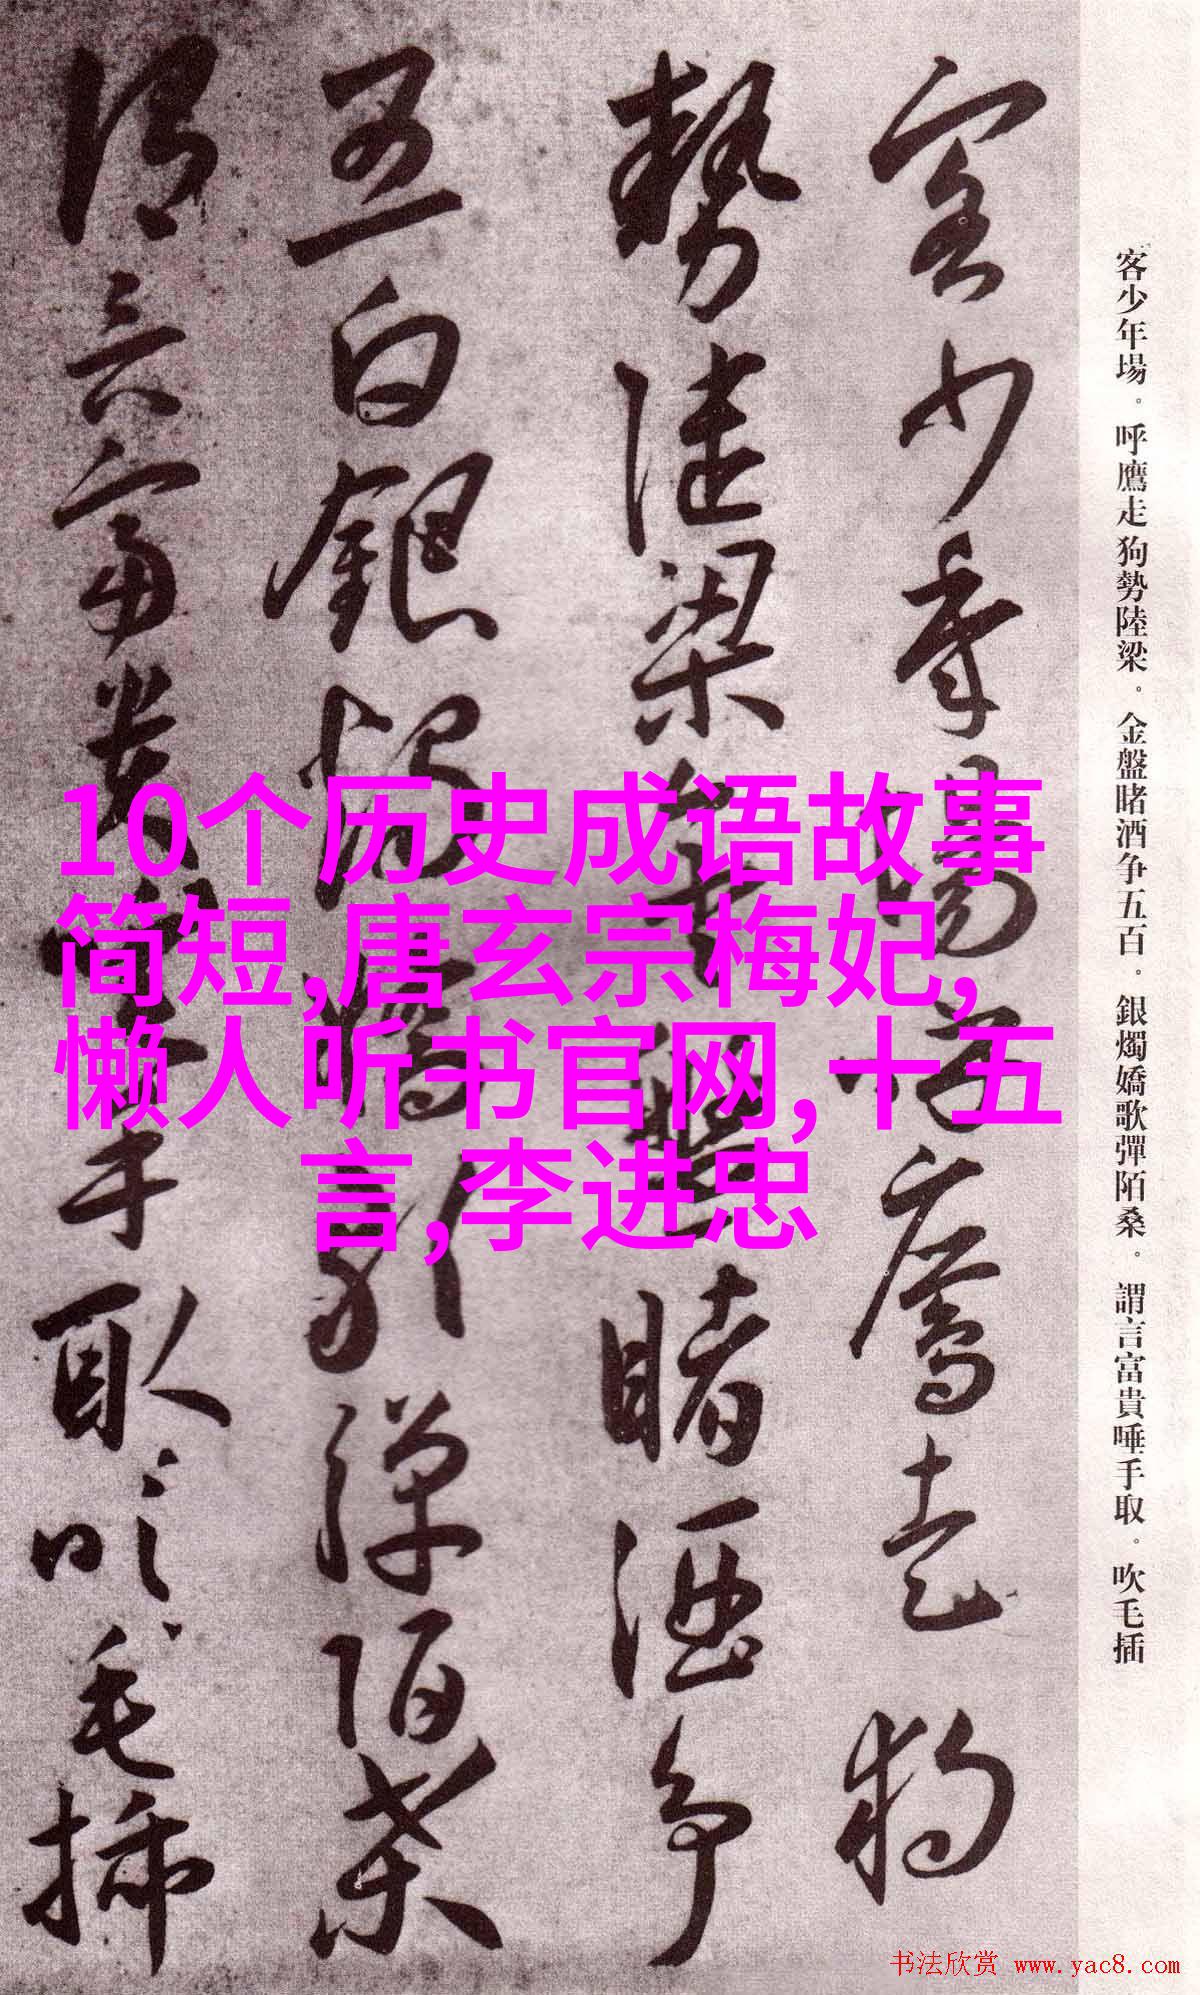 客少年場。呼鷹走狗勢陸梁。金盤睹酒争五百。銀燭嬌歌彈陌桑。謂言富貴唾手取。吹毛插
客少年場呼鷹走狗
勢陸梁金盤睹酒争
五百銀燭嬌歌彈陌桑
謂言富貴唾手取吹毛插
10个历史成语故事
简短,唐玄宗梅妃,
懒人听书官网,十五
言,李进忠
书法欣赏 www.yac8.com